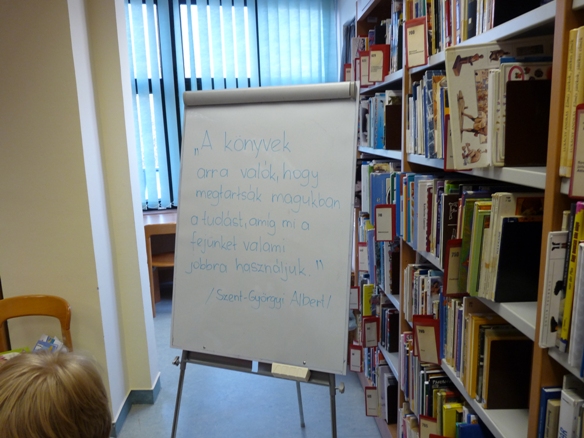 „A könyvek
arra valók, hogy
megtartsák magukban
a tudást, amíg mi a
fejünket valami
jobbra használjuk."
/Szent-Györgyi Albert/